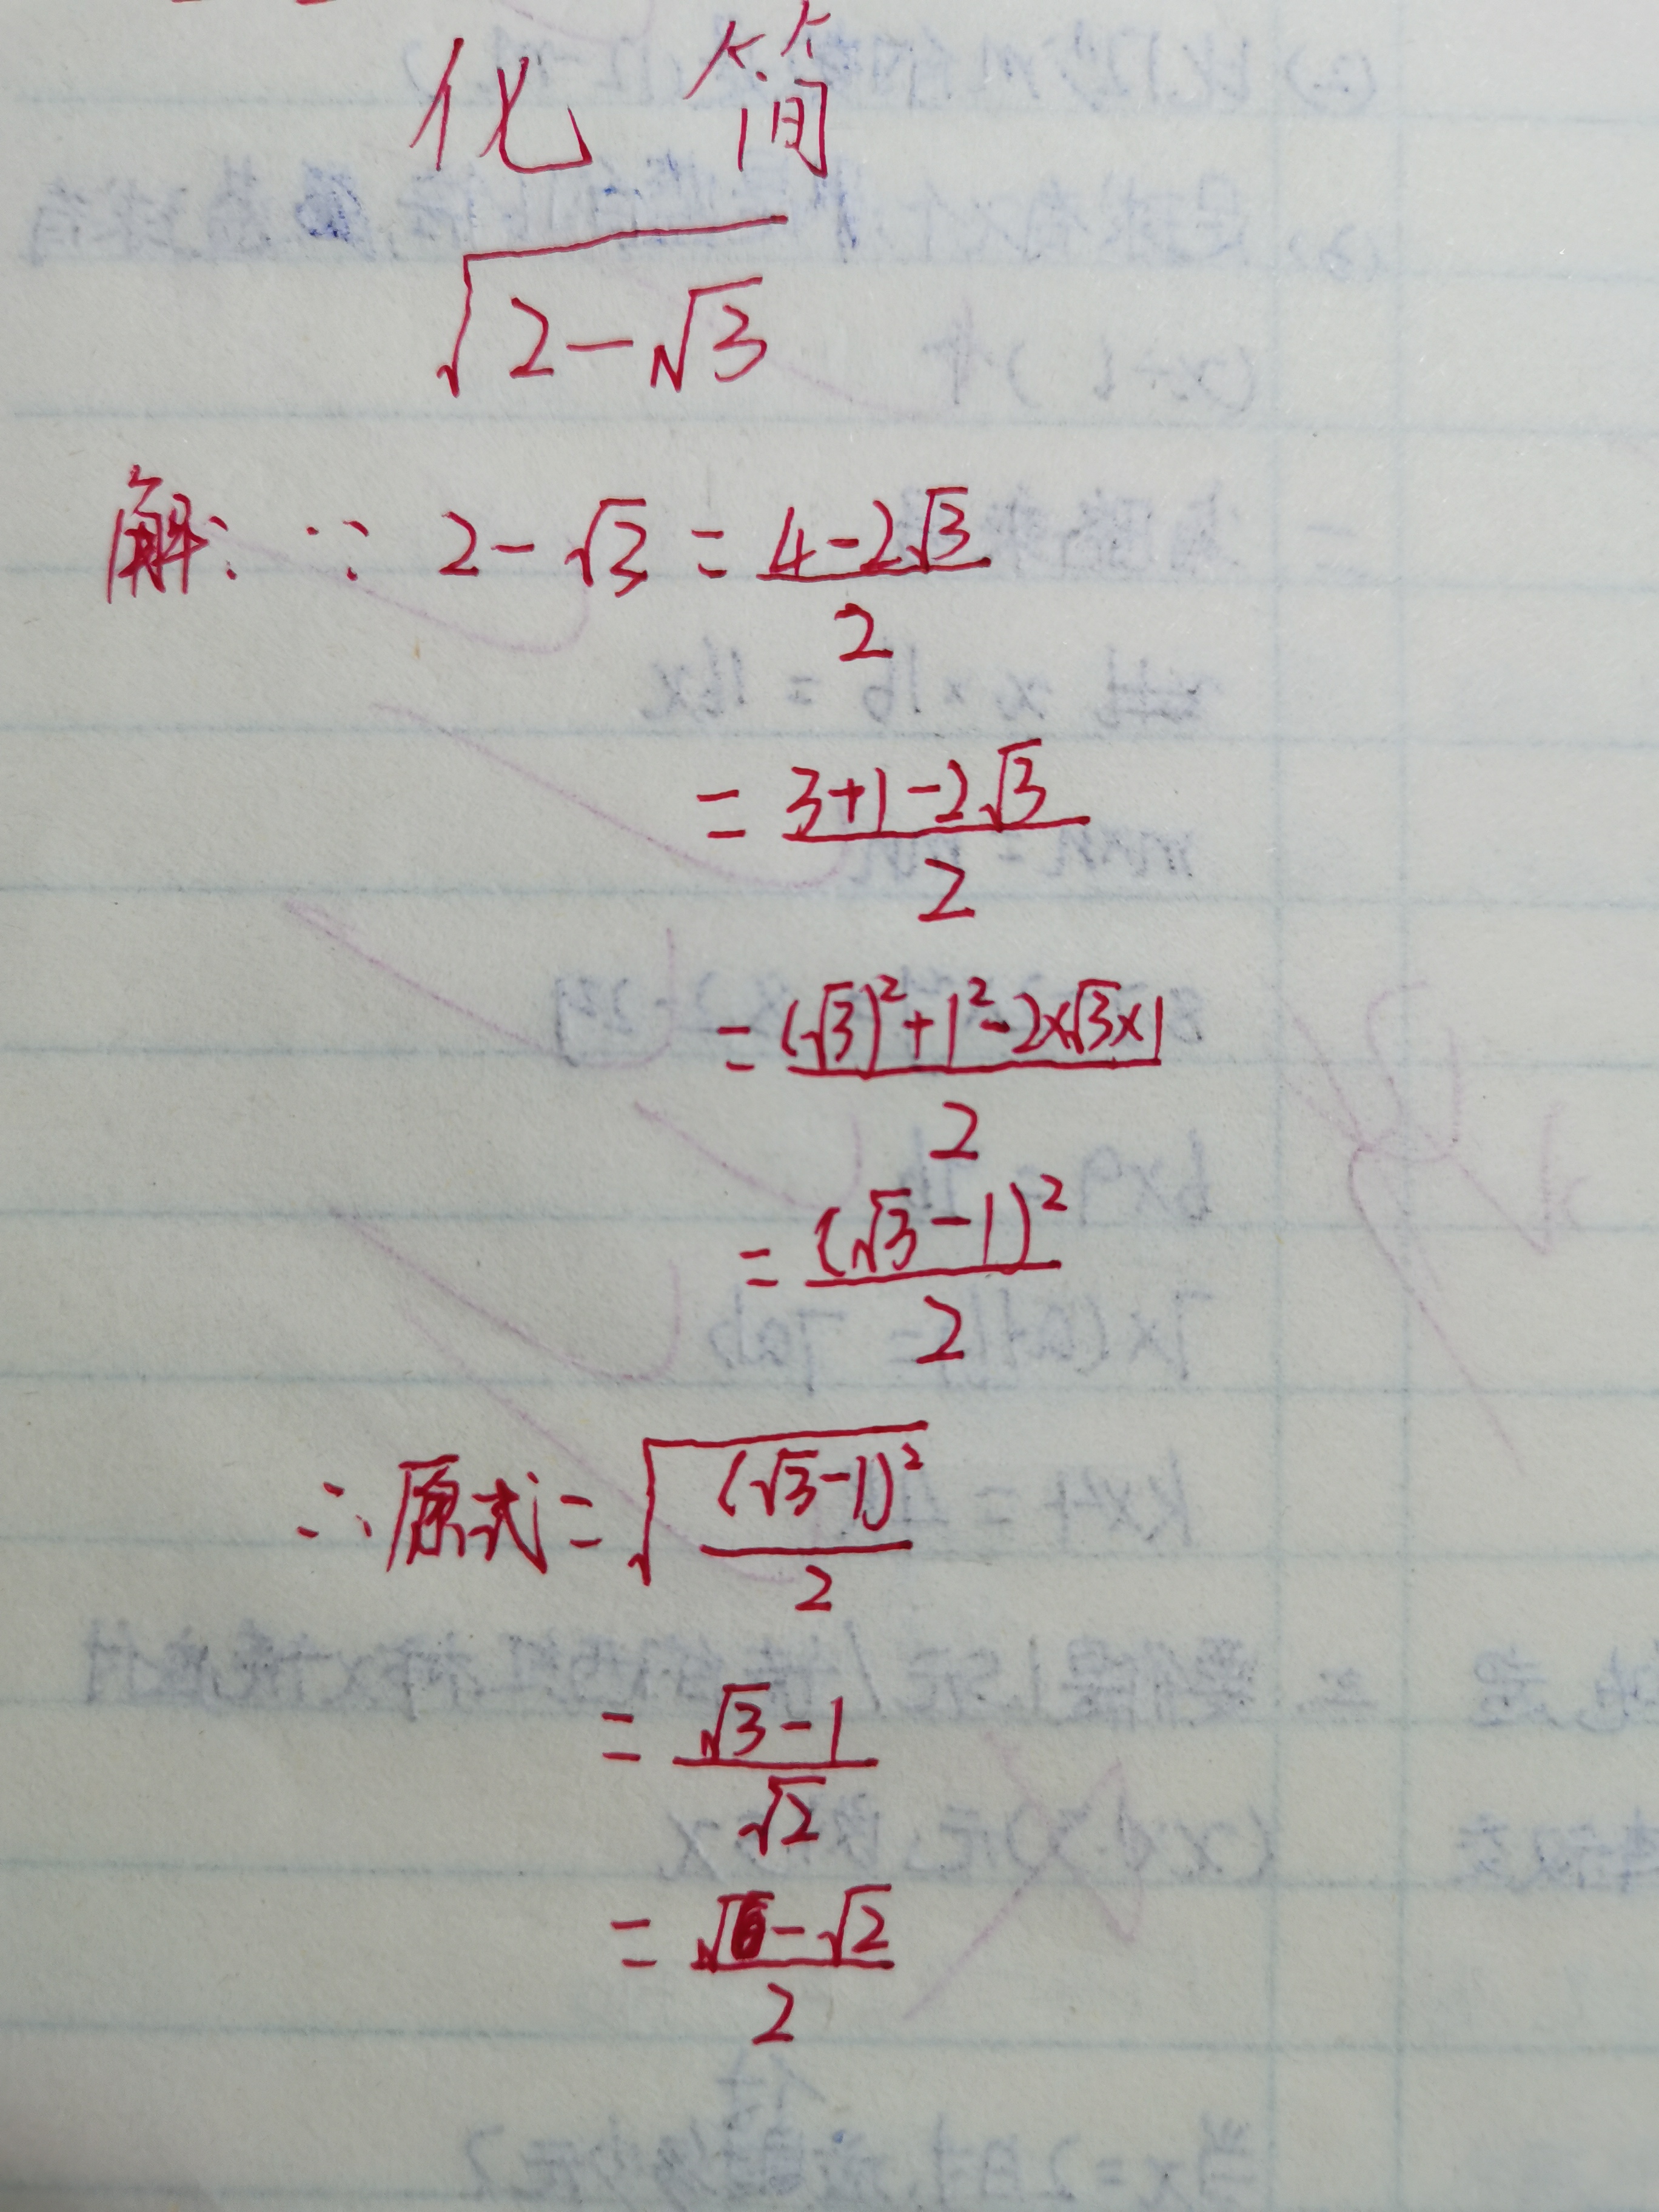 化简
√(2-√3)
解: ∵ 2-√3 = (4-2√3)/2
= (3+1-2√3)/2
= ((√3)²+1²-2×√3×1)/2
= (√3-1)²/2
∴原式= √((√3-1)²/2)
= (√3-1)/√2
= (√6-√2)/2